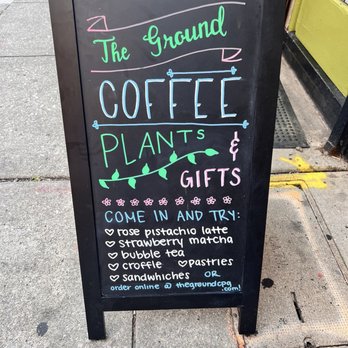 The Ground
COFFEE
PLANTS
&
GIFTS
COME IN AND TRY:
♡ rose pistachio latte
♡ strawberry matcha
♡ bubble tea
♡ croffle ♡ pastries
♡ sandwhiches OR
order online @ thegroundcpg
.com!